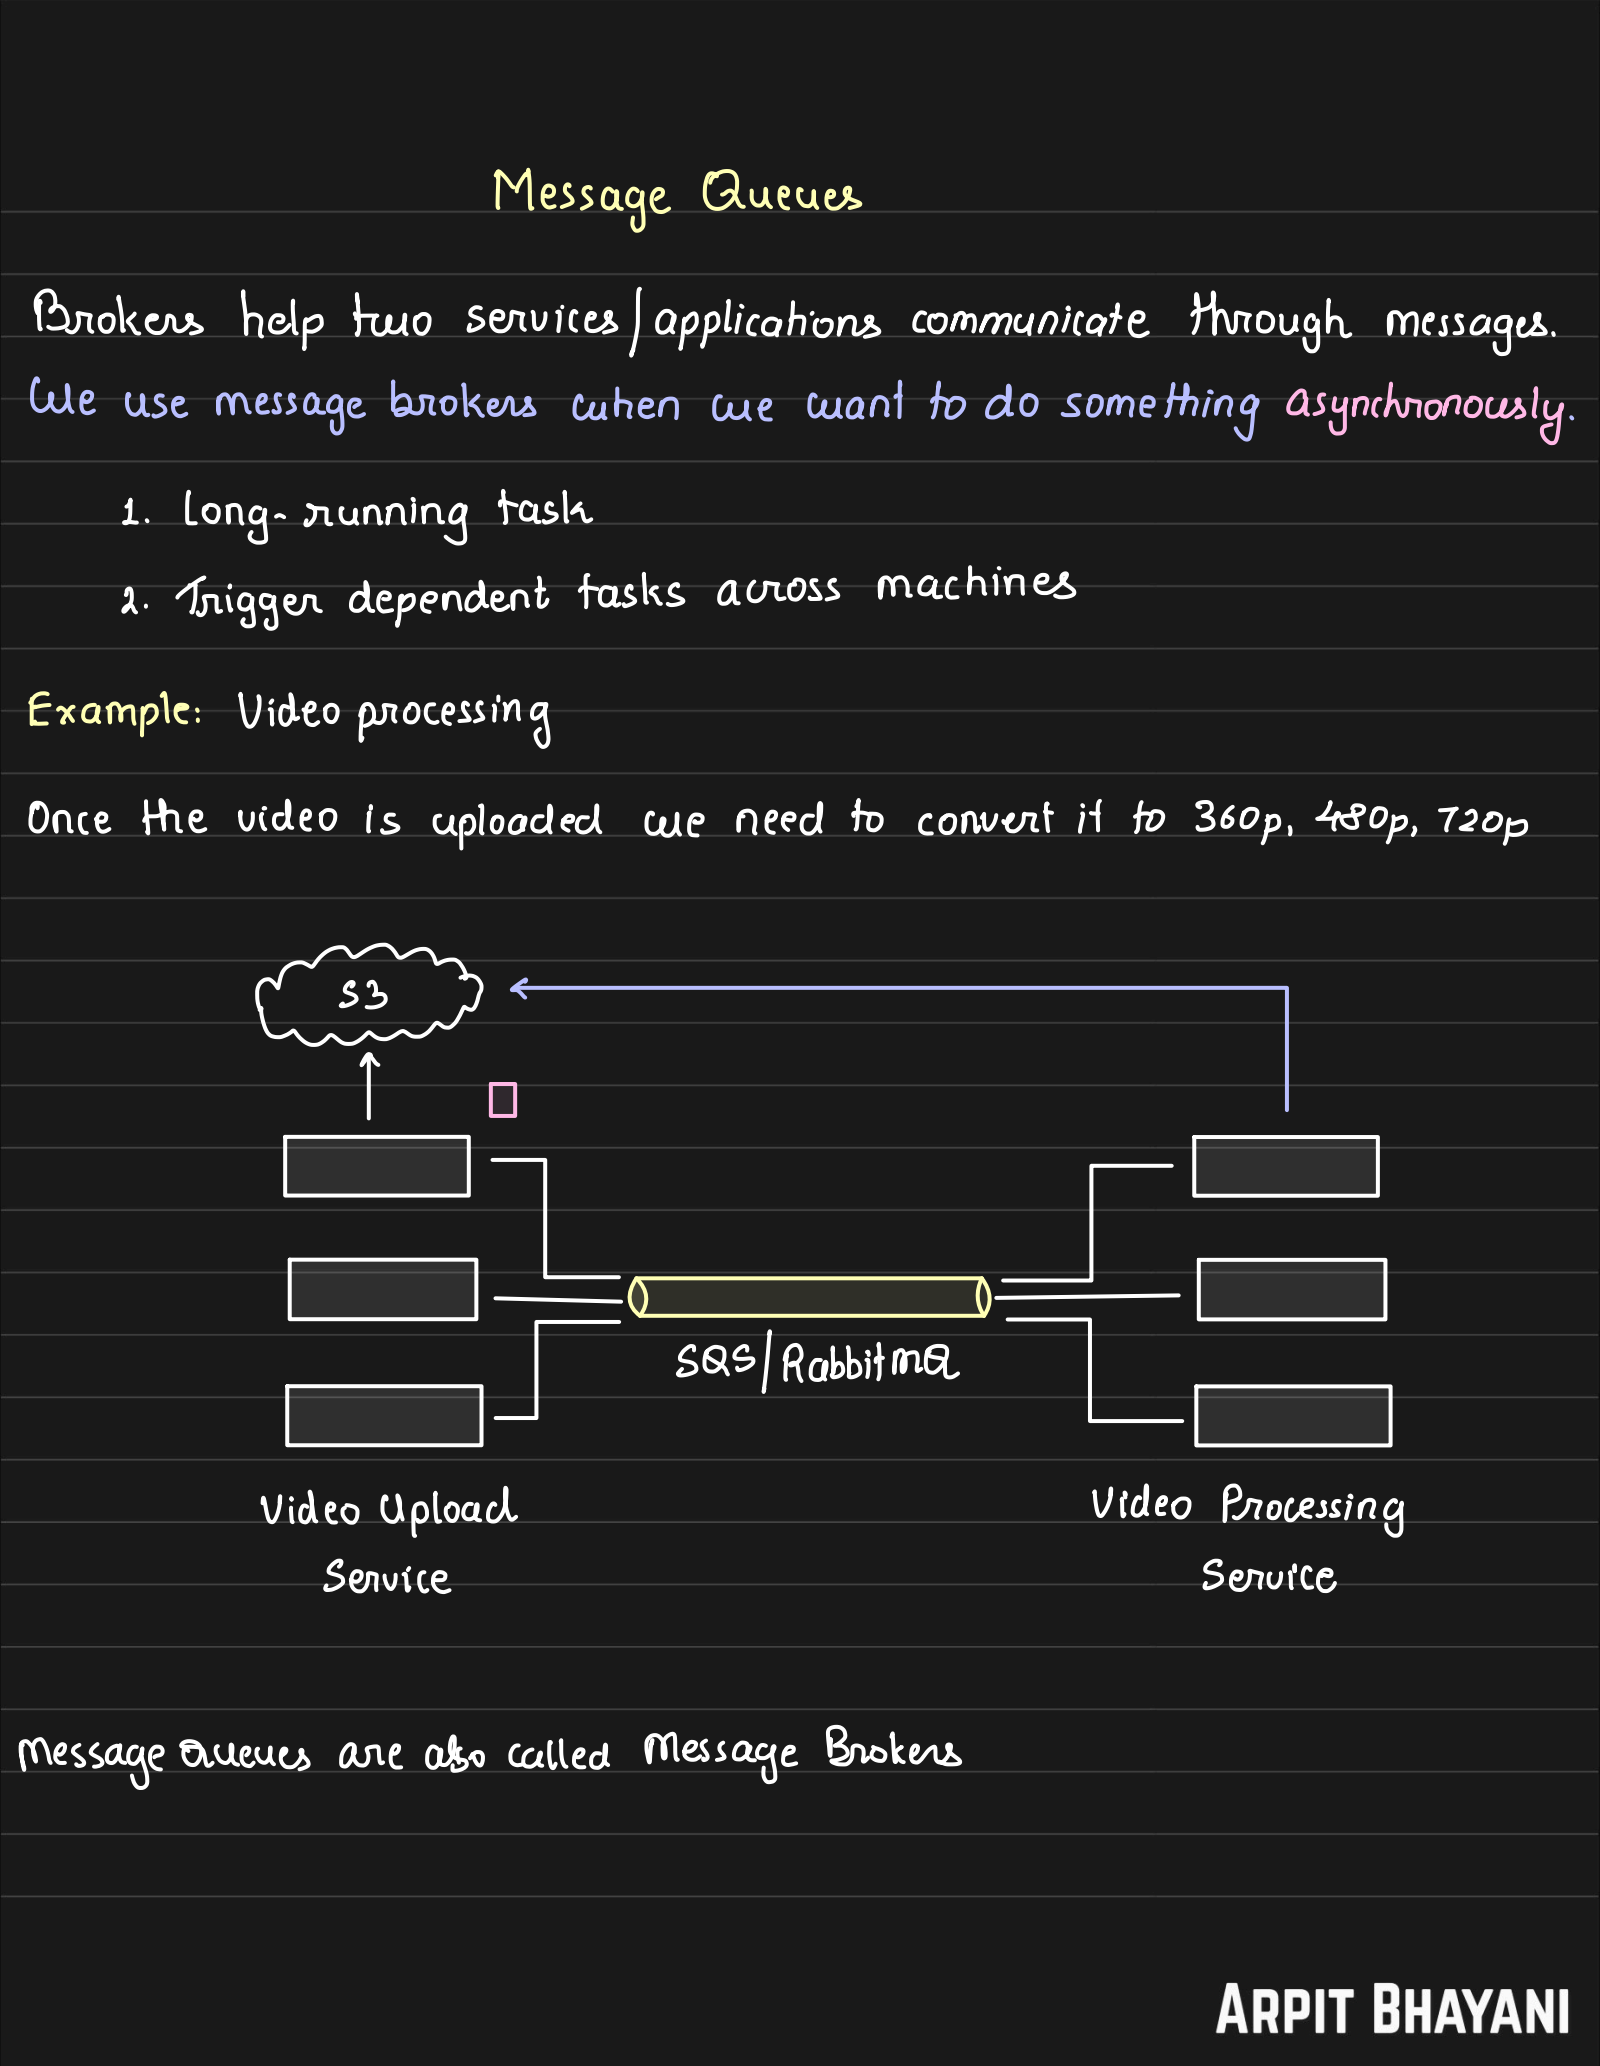 Message Queues
Brokers help two services/applications communicate through messages.
We use message brokers when we want to do something asynchronously.
1. Long-running task
2. Trigger dependent tasks across machines
Example: Video processing
Once the video is uploaded we need to convert it to 360p, 480p, 720p
S3
SQS/RabbitMQ
Video Upload Service
Video Processing Service
Message Queues are also called Message Brokers
ARPIT BHAYANI